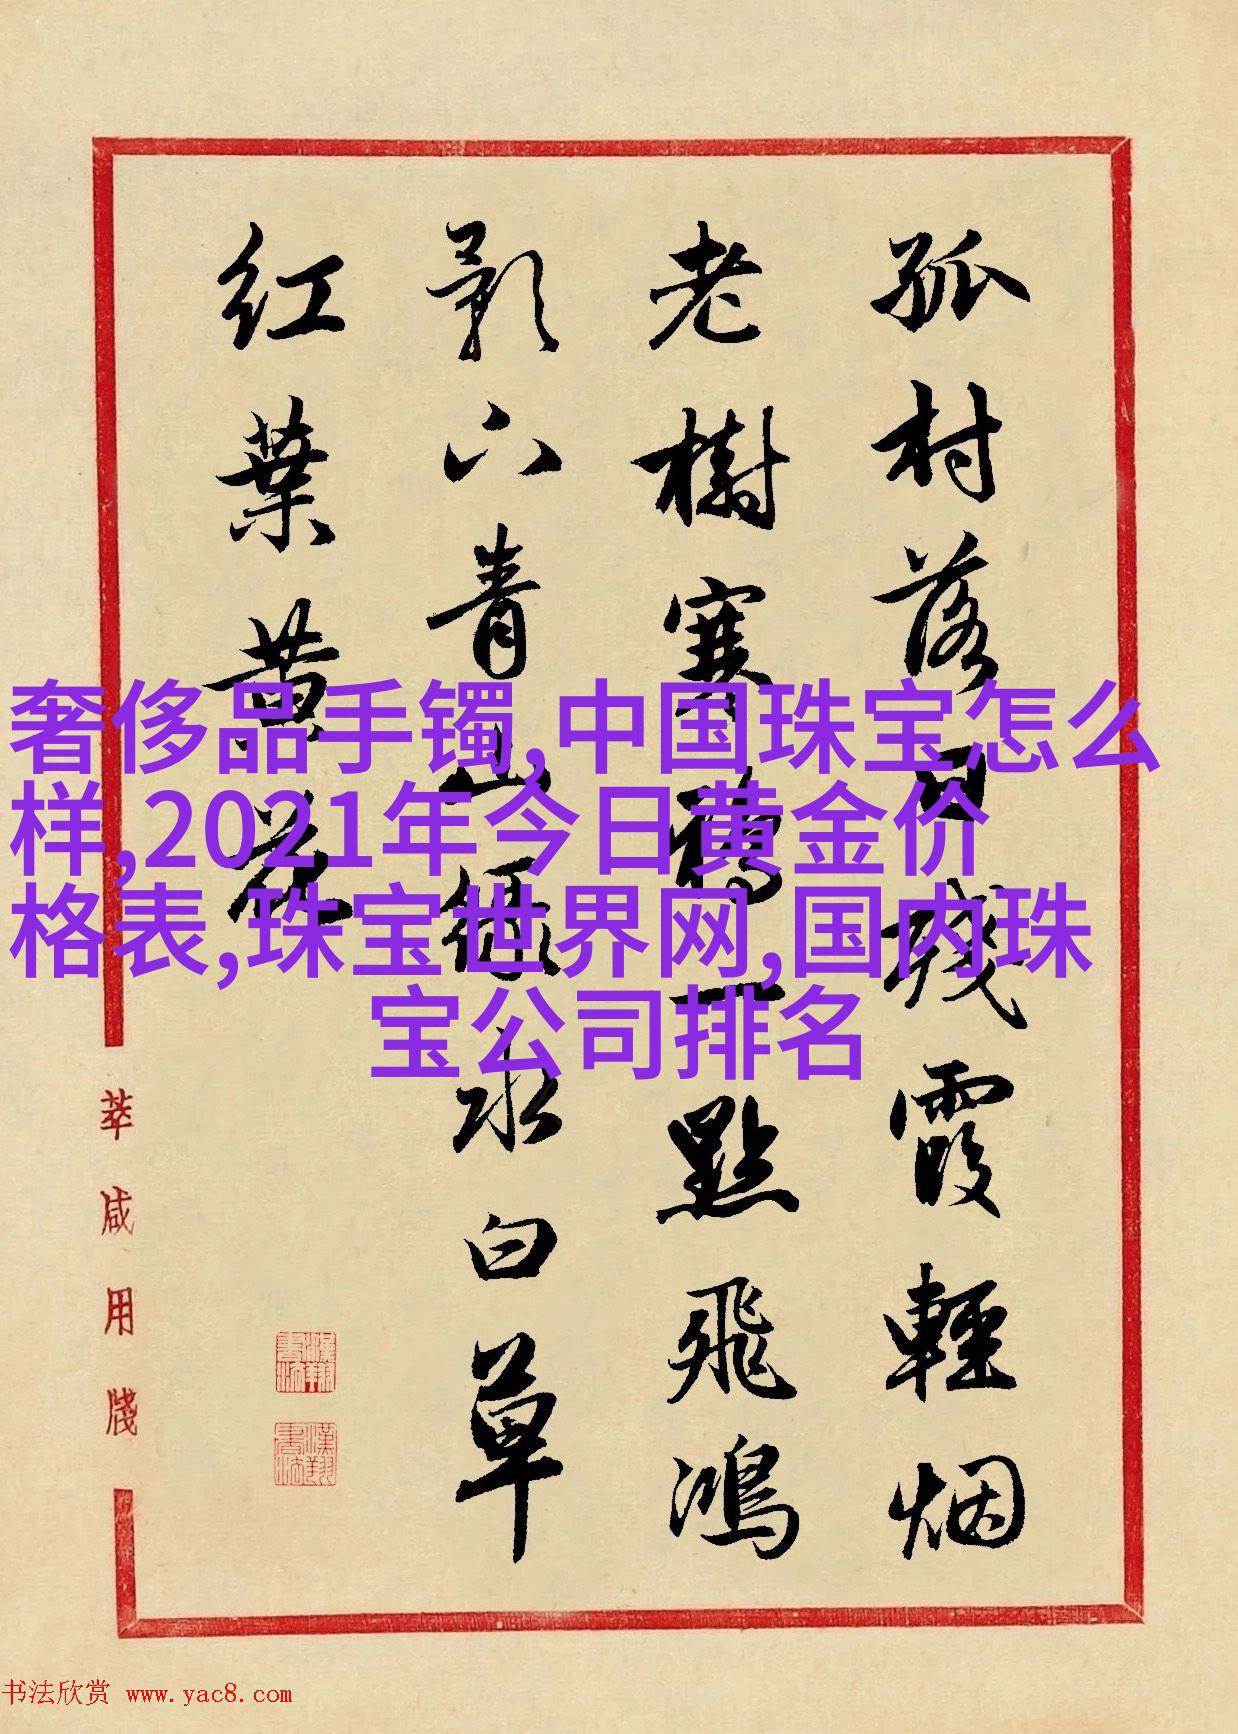 孤村落日殘霞輕烟
老樹寒鴉一點飛鴻
影下青山綠水白草
紅葉黃花
奢侈品手镯,中国珠宝怎么
样,2021年今日黄金价
格表,珠宝世界网,国内珠
宝公司排名
用牋
书法欣赏 www.yac8.com